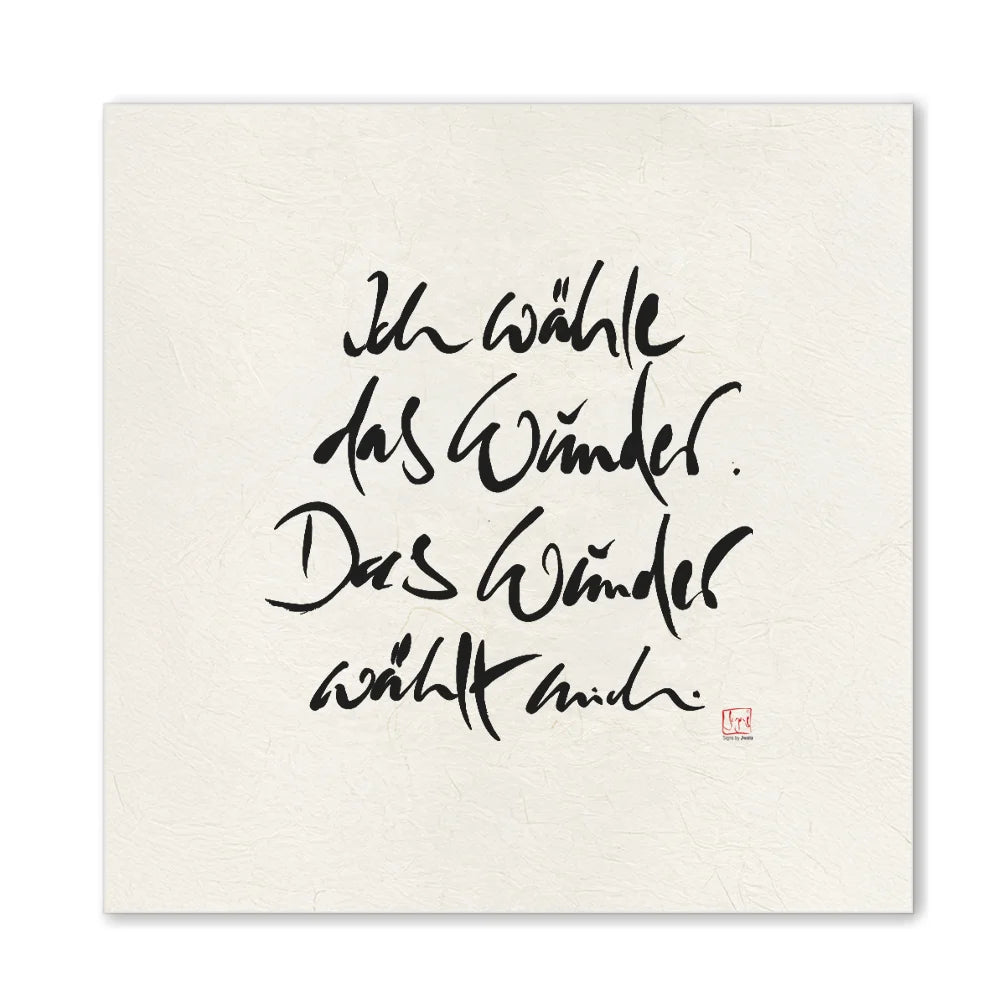 Ich wähle
das Wunder.
Das Wunder
wählt mich.
Signs by Jwala